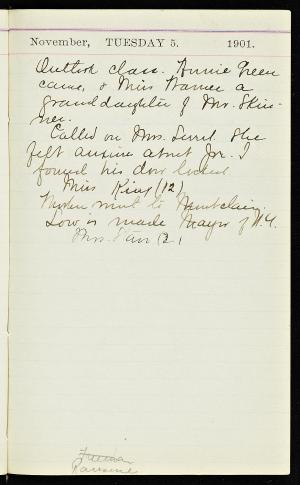 November, TUESDAY 5. 1901.
Outlook class. Annie Green
came, & Miss Warner a
granddaughter of Mrs. Skin-
ner.
Called on Mrs. She
felt anxious about Jr. I
found his door locked
Miss King (12)
went to Montclair
Low is made Mayor of N.Y.
Mrs. Starr (2)